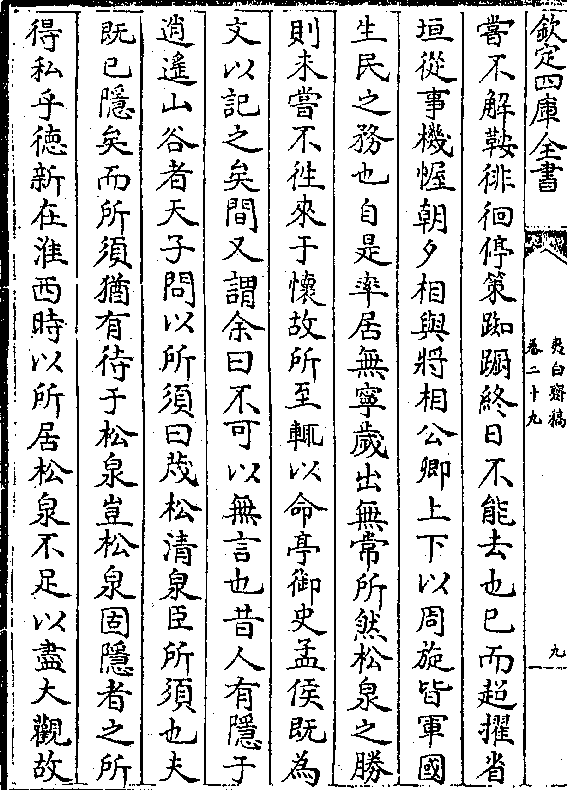 欽定四庫全書
夷白齋稿
卷二十九
九
嘗不解鞍徘徊停策踟蹰終日不能去也已而超擢省
垣從事機幄朝夕相與將相公卿上下以周旋皆軍國
生民之務也自是率居無寧歲出無常所然松泉之勝
則未嘗不徃來于懷故所至輒以命亭御史孟侯既為
文以記之矣間又謂余曰不可以無言也昔人有隱于
逍遙山谷者天子問以所須曰茂松清泉臣所須也夫
既已隱矣而所須猶有待于松泉豈松泉固隱者之所
得私乎徳新在淮西時以所居松泉不足以盡大觀故